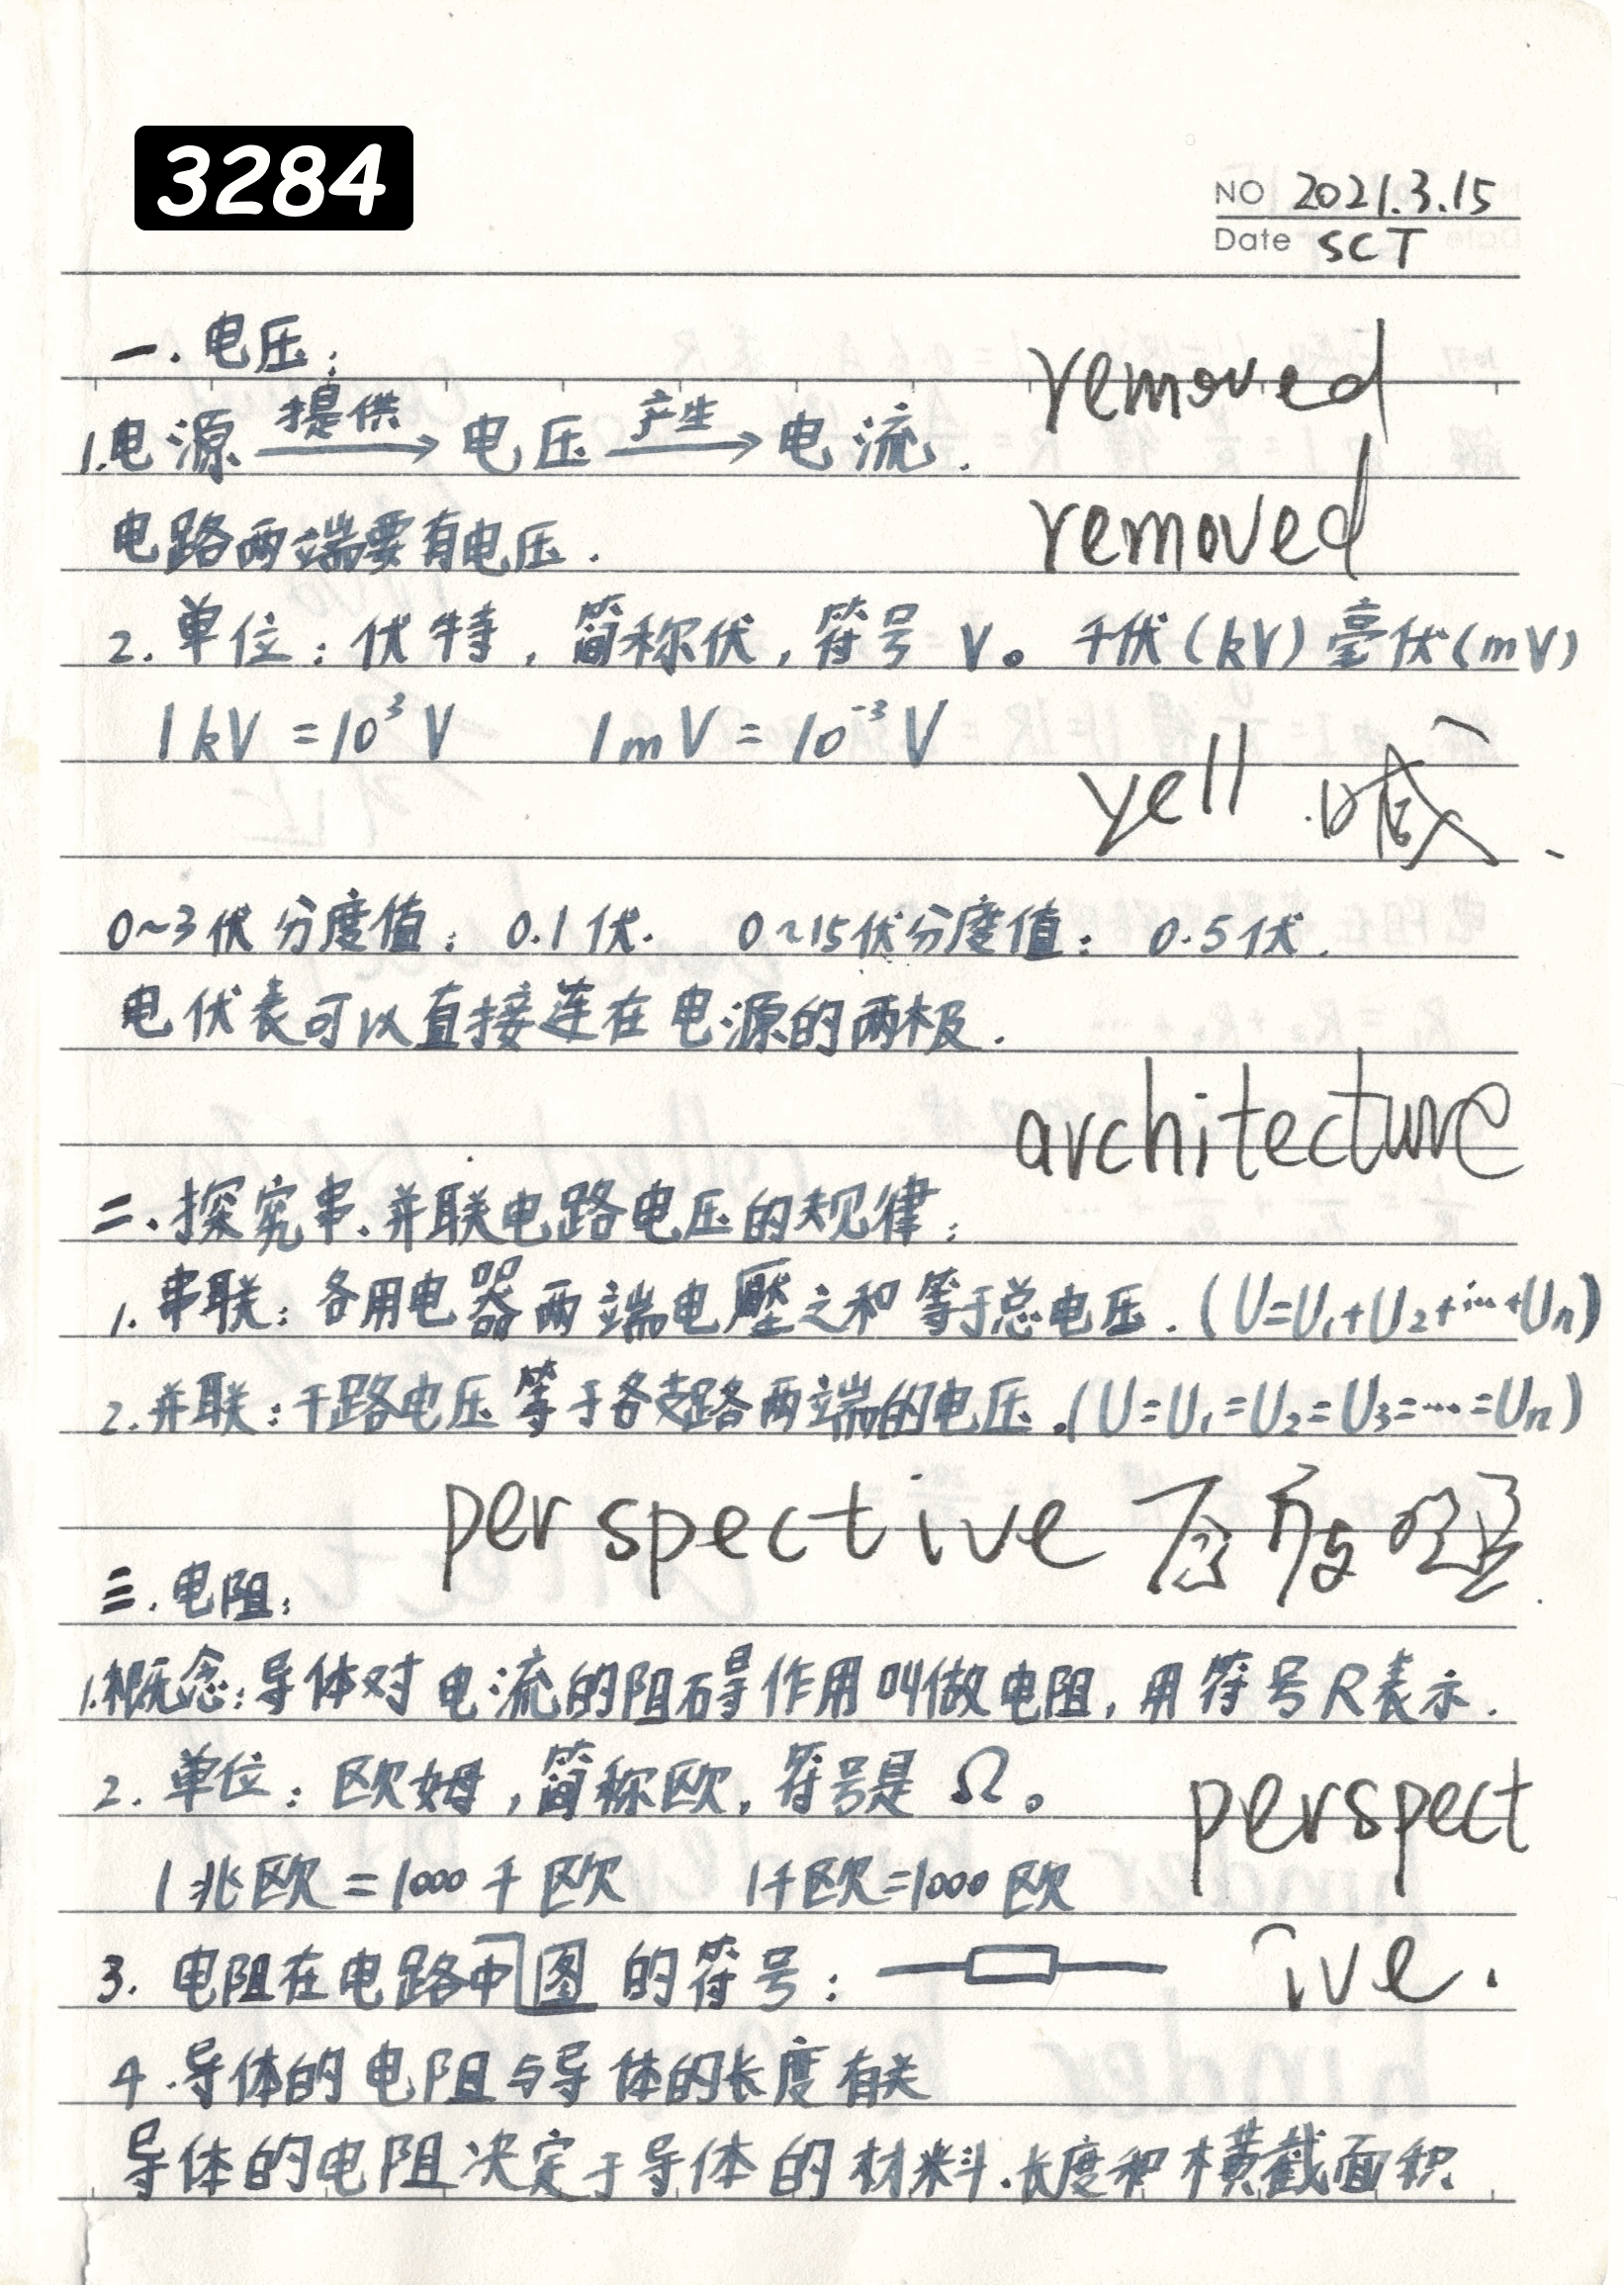 3284
NO 2021.3.15
Date SCT
一. 电压:
removed
1.电源 提供→ 电压 产生→ 电流.
removed
电路两端要有电压.
2. 单位: 伏特, 简称伏, 符号 V。 千伏(kV) 毫伏(mV)
1kV =10³V 1mV = 10⁻³V
yell 喊
0~3伏 分度值: 0.1伏. 0~15伏分度值: 0.5伏.
电伏表可以直接连在电源的两极.
architecture
二、探究串、并联电路电压的规律:
1. 串联: 各用电器两端电壓之和等于总电压. (U=U₁+U₂+…+Uₙ)
2. 并联: 干路电压等于各支路两端的电压.(U=U₁=U₂=U₃=…=Uₙ)
perspective
三. 电阻:
1.概念: 导体对电流的阻碍作用叫做电阻, 用符号R表示.
2. 单位: 欧姆, 简称欧, 符号是 Ω。
perspect
1兆欧=1000千欧 1千欧=1000欧
3. 电阻在电路中图的符号:
ive.
4. 导体的电阻与导体的长度有关
导体的电阻决定于导体的材料、长度和横截面积.